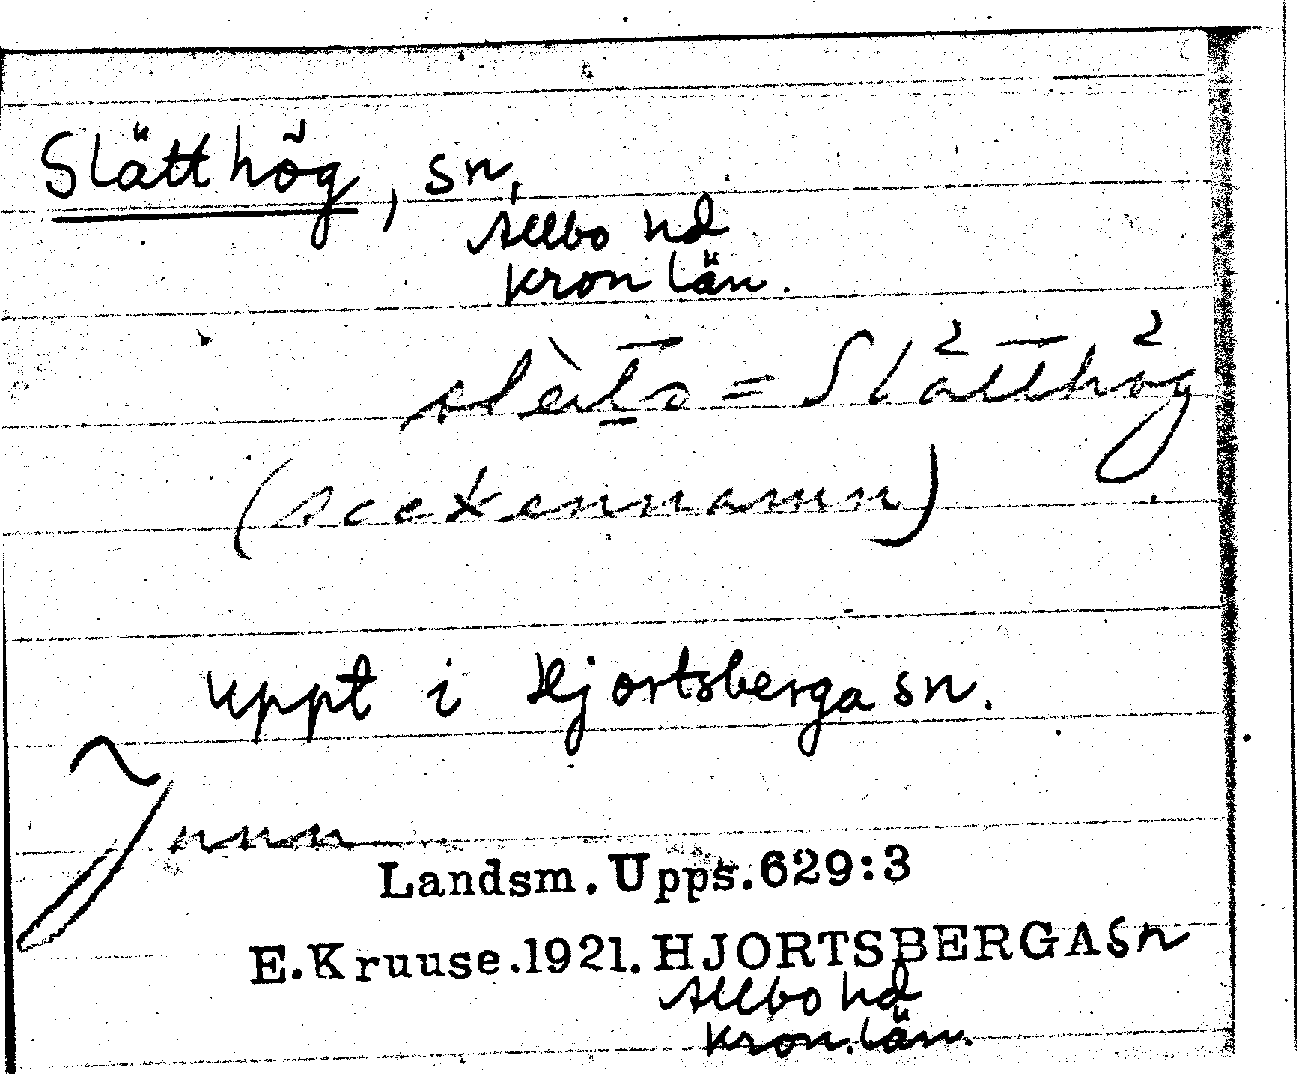 Slätthög, sn,
Allbo hd
Kron län.
= Slätthög
(sockennamn)
uppt i Hjortsberga sn.
Landsm. Upps. 629:3
E. Kruuse. 1921. HJORTSBERGA sn
Allbo hd
Kron. län.